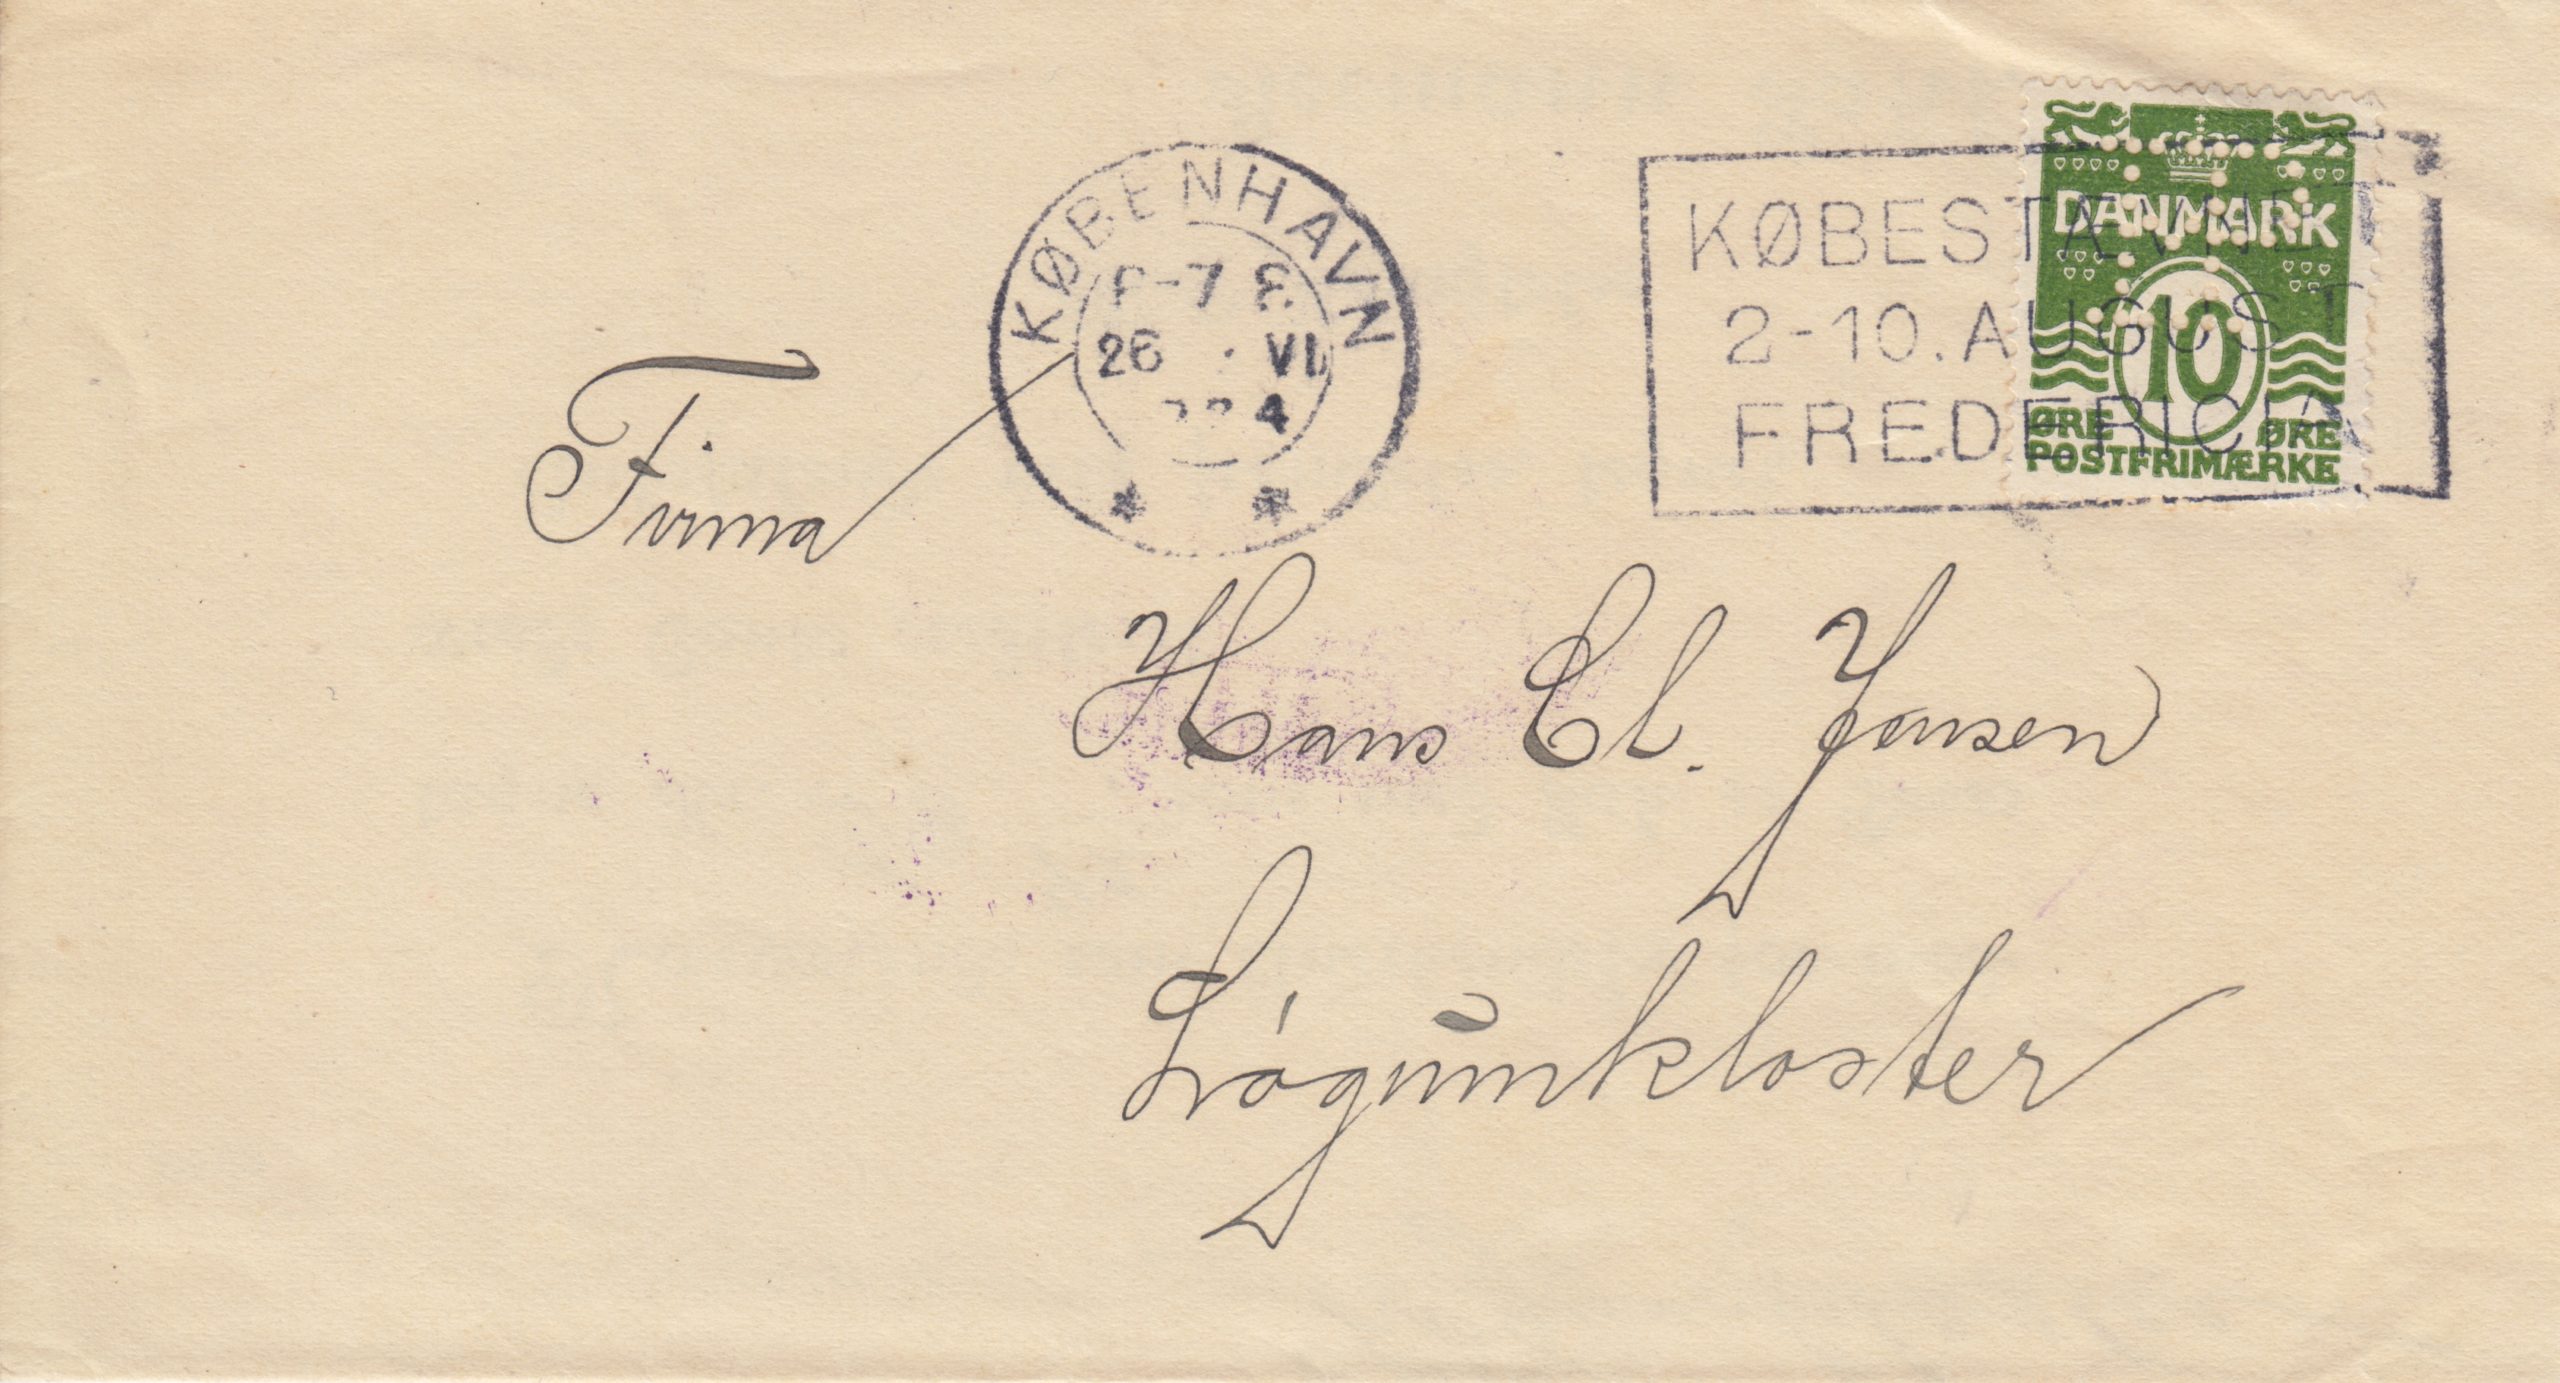 KØBENHAVN
26 VI
KØBESTÆVNET
2-10. AUGUST
FREDERICIA
DANMARK
10
ØRE ØRE
POSTFRIMÆRKE
Firma
Hans Cl. Jensen
Løgumkloster